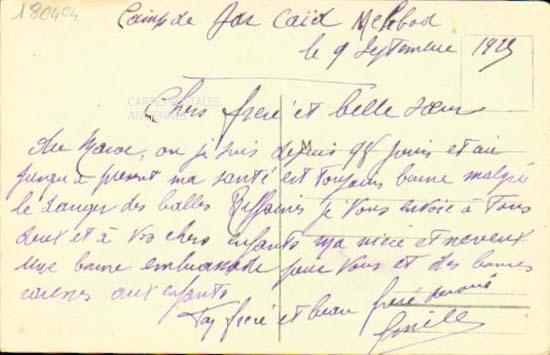 180404
Camp de Caïd
le 9 Septembre 1925
CARTES POSTALES
ANCIENNES
Chers frere et belle sœur
Au Maroc, ou je suis depuis 98 jours et ai
jusqu'a present ma santé est toujours bonne malgré
le danger des balles Riffaines je vous envoie à tous
deux et à vos chers enfants ma niece et neveux
une bonne embrassade pour vous et des bonnes
caresses aux enfants
Ton frere et beau frere